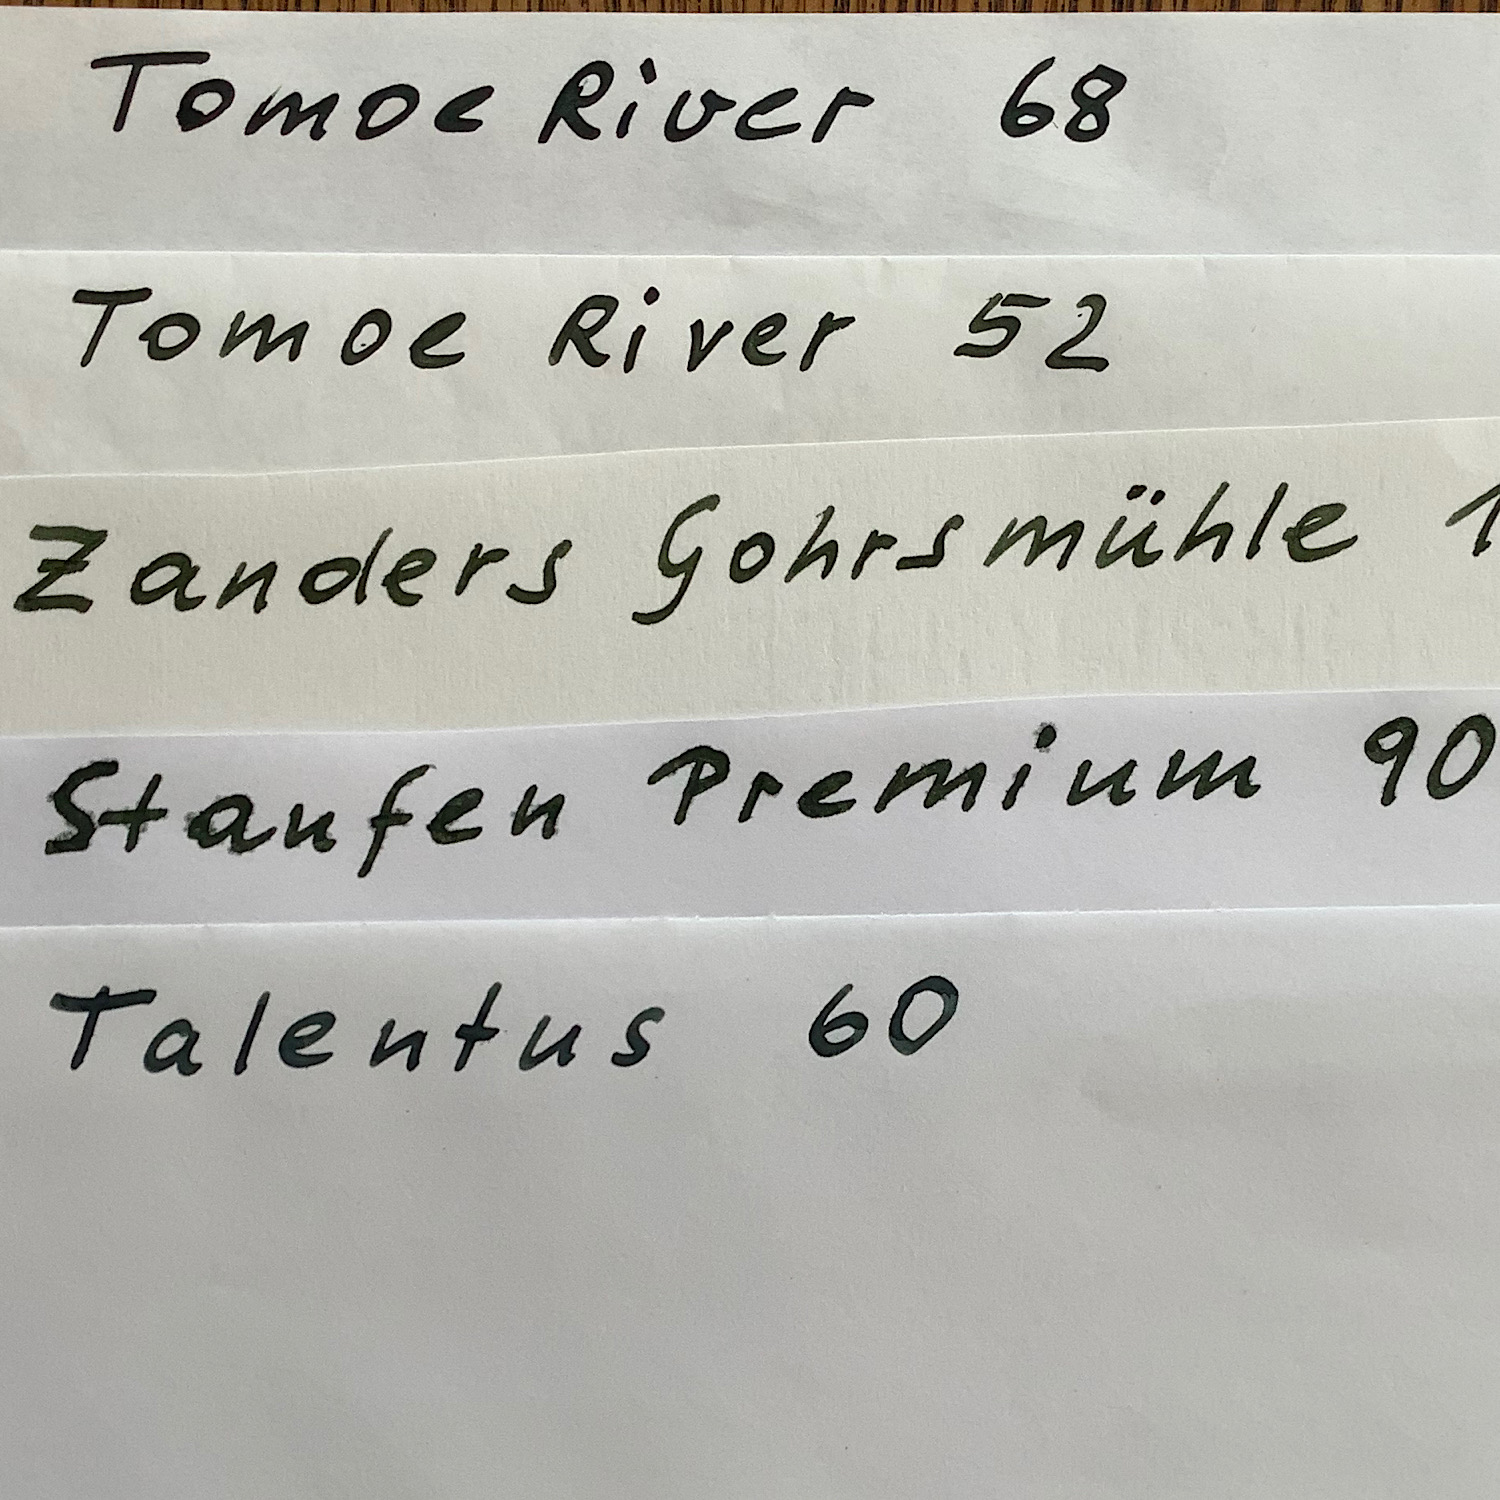 Tomoe River 68
Tomoe River 52
Zanders Gohrsmühle 1
Staufen Premium 90
Talentus 60